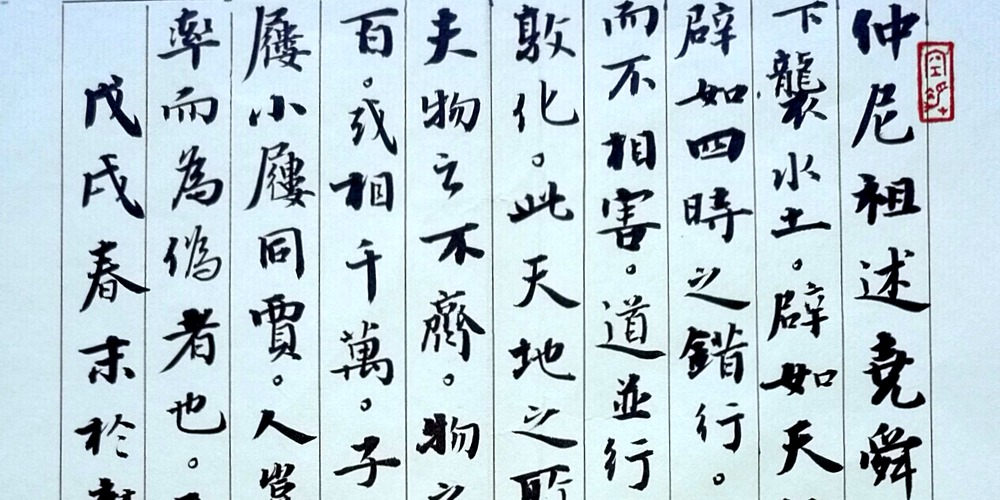 仲尼祖述堯舜
下襲水土。辟如天
辟如四時之錯行。
而不相害。道並行
敦化。此天地之所
夫物之不齊。物之
百。或相千萬。子
屨小屨同賈。人豈
率而為偽者也。
戊戌春末於